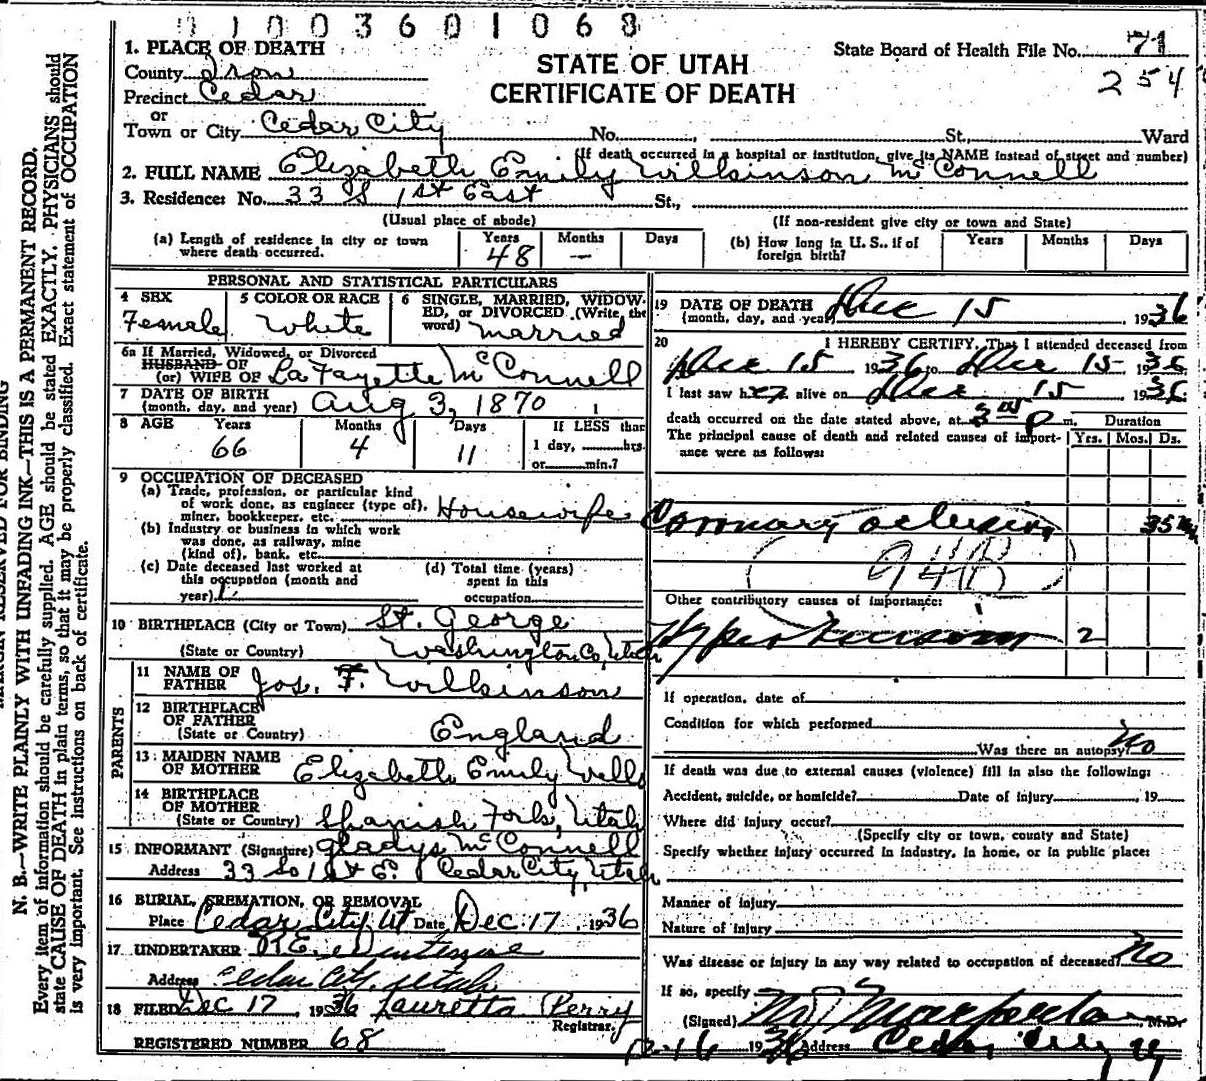 0 1 0 0 3 6 0 1 0 6 8
1. PLACE OF DEATH
County Iron
Precinct Cedar
or
Town or City Cedar City No. St., Ward
STATE OF UTAH
CERTIFICATE OF DEATH
State Board of Health File No. 71
254
(If death occurred in a hospital or institution, give its NAME instead of street and number)
2. FULL NAME Elizabeth Emily Wilkinson McConnell
3. Residence: No. 33 S 1st East St.,
(Usual place of abode) (If non-resident give city or town and State)
(a) Length of residence in city or town where death occurred. Years 48 Months — Days
(b) How long in U. S., if of foreign birth? Years Months Days
PERSONAL AND STATISTICAL PARTICULARS
4 SEX Female
5 COLOR OR RACE White
6 SINGLE, MARRIED, WIDOWED, or DIVORCED (Write the word) married
6a If Married, Widowed, or Divorced
HUSBAND OF
(or) WIFE OF LaFayette McConnell
7 DATE OF BIRTH
(month, day, and year) Aug 3, 1870
8 AGE Years 66 Months 4 Days 11 If LESS than 1 day, hrs. or min.?
9 OCCUPATION OF DECEASED
(a) Trade, profession, or particular kind
of work done, as engineer (type of),
miner, bookkeeper, etc. Housewife
(b) Industry or business in which work
was done, as railway, mine
(kind of), bank, etc.
(c) Date deceased last worked at
this occupation (month and
year)
(d) Total time (years)
spent in this
occupation
10 BIRTHPLACE (City or Town) St. George
(State or Country) Washington Co, Utah
PARENTS
11 NAME OF FATHER Jos. F. Wilkinson
12 BIRTHPLACE OF FATHER
(State or Country) England
13 MAIDEN NAME OF MOTHER Elizabeth Emily Wells
14 BIRTHPLACE OF MOTHER
(State or Country) Spanish Fork, Utah
15 INFORMANT (Signature) Gladys McConnell
Address 33 So 1st E. Cedar City, Utah
16 BURIAL, CREMATION, OR REMOVAL
Place Cedar City Ut Date Dec 17 1936
17 UNDERTAKER
Address Cedar City, Utah
18 FILED Dec 17 1936 Lauretta Perry
Registrar.
REGISTERED NUMBER 68
19 DATE OF DEATH
(month, day, and year) Dec 15 1936
20 I HEREBY CERTIFY, That I attended deceased from
Dec 15 1936 to Dec 15 1936
I last saw her alive on Dec 15 1936
death occurred on the date stated above, at 3 P m.
Duration
The principal cause of death and related causes of importance were as follows: Yrs. Mos. Ds.
Coronary oclusion
94B
Other contributory causes of importance:
Hypertension 2
If operation, date of
Condition for which performed
Was there an autopsy? No
If death was due to external causes (violence) fill in also the following:
Accident, suicide, or homicide? Date of injury , 19
Where did injury occur?
(Specify city or town, county and State)
Specify whether injury occurred in industry, in home, or in public place:
Manner of injury
Nature of injury
Was disease or injury in any way related to occupation of deceased? No
If so, specify
(Signed) M.D.
12-16 1936 Address Cedar City U
MARGIN RESERVED FOR BINDING
N. B.—WRITE PLAINLY WITH UNFADING INK—THIS IS A PERMANENT RECORD.
Every item of information should be carefully supplied. AGE should be stated EXACTLY. PHYSICIANS should
state CAUSE OF DEATH in plain terms, so that it may be properly classified. Exact statement of OCCUPATION
is very important. See instructions on back of certificate.